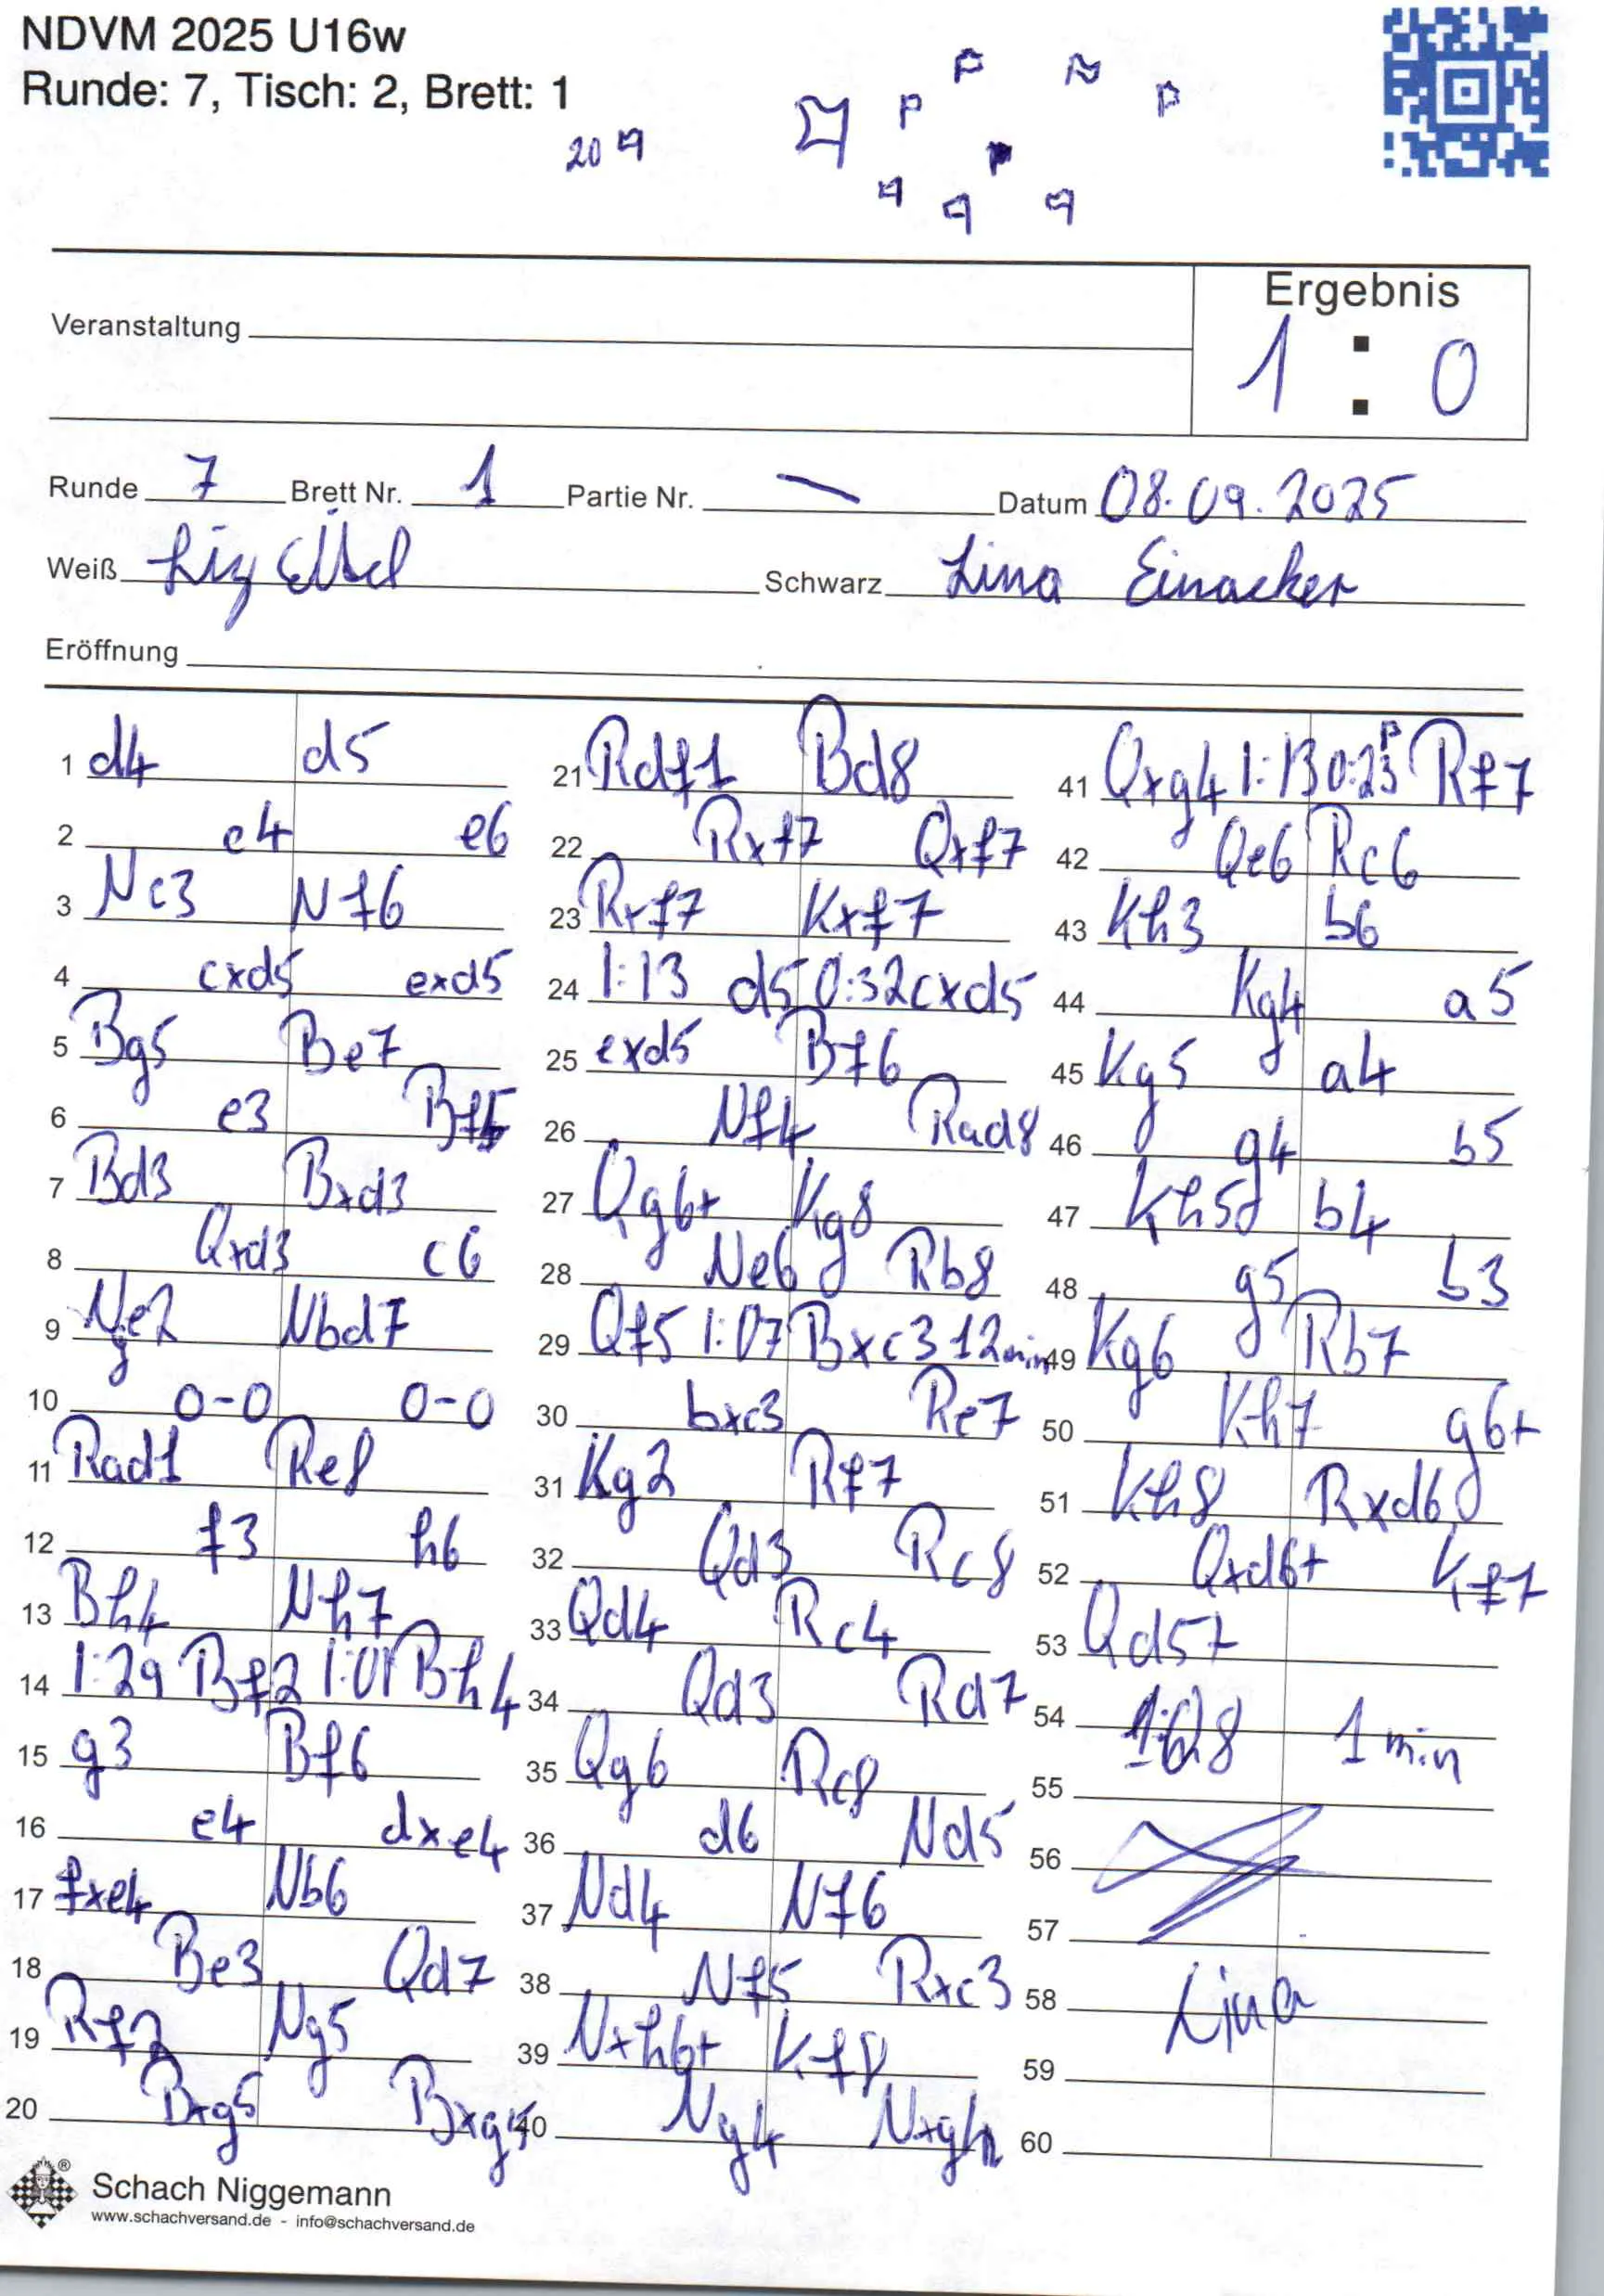 NDVM 2025 U16w
Runde: 7, Tisch: 2, Brett: 1
20
Ergebnis
1 : 0
Veranstaltung
Runde 7 Brett Nr. 1 Partie Nr. — Datum 08.09.2025
Weiß Liz Schwarz Lina Einacker
Eröffnung
1 d4 d5
2 c4 e6
3 Nc3 Nf6
4 cxd5 exd5
5 Bg5 Be7
6 e3 Bf5
7 Bd3 Bxd3
8 Qxd3 c6
9 Nge2 Nbd7
10 0-0 0-0
11 Rad1 Re8
12 f3 h6
13 Bh4 Nh7
14 1:29 Bf2 1:01 Bh4
15 g3 Bf6
16 e4 dxe4
17 fxe4 Nb6
18 Be3 Qd7
19 Rf2 Ng5
20 Bxg5 Bxg5
21 Rdf1 Bd8
22 Rxf7 Qxf7
23 Rxf7 Kxf7
24 1:13 d5 0:32 cxd5
25 exd5 Bf6
26 Nf4 Rad8
27 Qg6+ Kg8
28 Ne6 Rb8
29 Qf5 1:07 Bxc3 12min
30 bxc3 Re7
31 Kg2 Rf7
32 Qd3 Rc8
33 Qd4 Rc4
34 Qd3 Rd7
35 Qg6 Rc8
36 d6 Nd5
37 Nd4 Nf6
38 Nf5 Rxc3
39 Nxh6+ Kf8
40 Ng4 Nxg4
41 Qxg4 1:13 0:23 Rf7
42 Qe6 Rc6
43 Kh3 b6
44 Kg4 a5
45 Kg5 a4
46 g4 b5
47 Kh5 b4
48 g5 b3
49 Kg6 Rb7
50 Kh7 g6+
51 Kh8 Rxd6
52 Qxd6+ Kf7
53 Qd5+
54 1:08 1 min
55
56
57
58 Lina
59
60
Schach Niggemann
www.schachversand.de - info@schachversand.de